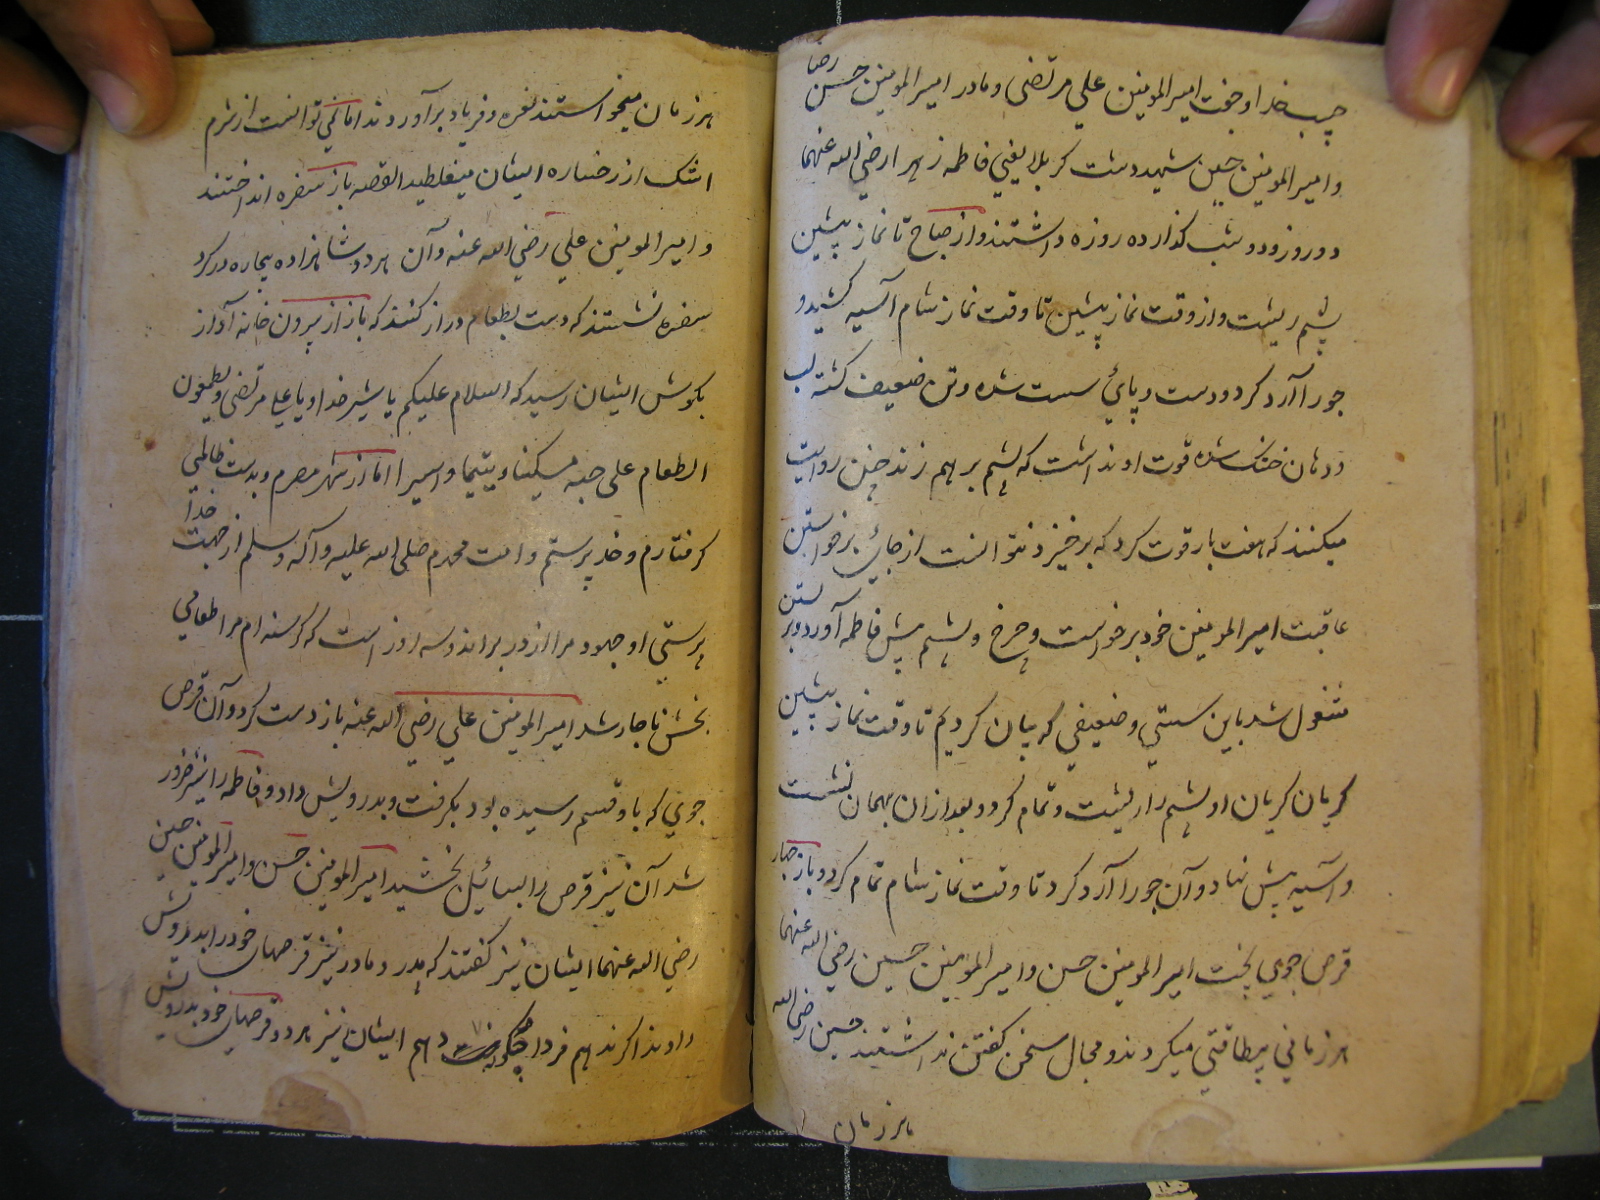 حبیب خدا و جفت امیرالمومنین علی مرتضی و مادر امیرالمومنین حسن رضا
و امیرالمومنین حسین شهید دشت کربلا یعنی فاطمه زهرا رضی الله عنهما
دو روز و دو شب گذارده روزه داشتند و از صباح تا نماز پیشین
پشم ریشت و از وقت نماز پیشین تا وقت نماز شام آسیه کشید و
جو را آرد کرد و دست و پائی سست شده و تن ضعیف کشته لب
و دهان خشک شده قوت او نداشت که پشم بر هم زند چنین روایت
میکنند که هفت بار قوت کرد که برخیزد نتوانست از جائی برخواستن
عاقبت امیرالمومنین خود برخواست و چرخ و پشم پیش فاطمه آورد و بر
مشغول شد باین سستی و ضعیفی که بیان کردیم تا وقت نماز پیشین
گریان گریان او پشم را ریشت و تمام کرد و بعد از ان بهمان نشست
و آسیه پیش نهاد و آن جو را آرد کرد تا وقت نماز شام تمام کرد و باز چهار
قرص جوی پخت امیرالمومنین حسن و امیرالمومنین حسین رضی الله عنهما
هر زمانی بیطاقتی میکردند و مجال سخن گفتن نداشتند حسین رضی الله
هر زمان
هر زمان میخواستند نعره و فریاد برآوردند اما نمی توانست از شرم
اشک از رخساره ایشان میغلطید القصه باز سفره انداختند
و امیرالمومنین علی رضی الله عنه و آن هر دو شاهزاده بیچاره در کرد
سفره نشستند که دست بطعام دراز کنند که باز از بیرون خانه آواز
بگوش ایشان رسید که السلام علیکم یا شیر خدا و یا علی مرتضی و یطعمون
الطعام علی حبه مسکینا و یتیما و اسیرا اما از شهر مصرم و بدست ظالمی
گرفتارم و خدا پرستم و امت محمدم صلی الله علیه و آله و سلم از جهت خدا
پرستی او جهود مرا از در براند و سه روز است که گرسنه ام مرا طعامی
بخش ناچار شد امیرالمومنین علی رضی الله عنه باز دست کرد و آن قرص
جوی که باو قسم رسیده بود بگرفت و بدرویش داد و فاطمه را نیز ضرور
شد آن نیز قرص را بسائیل بخشید امیرالمومنین حسن و امیرالمومنین حسین
رضی الله عنهما ایشان نیز گفتند که پدر و مادر نیز قرصهای خود را بدرویش
دادند اگر ندهم فردا چگونه دهم ایشان نیز هر دو قرصهای خود بدرویش